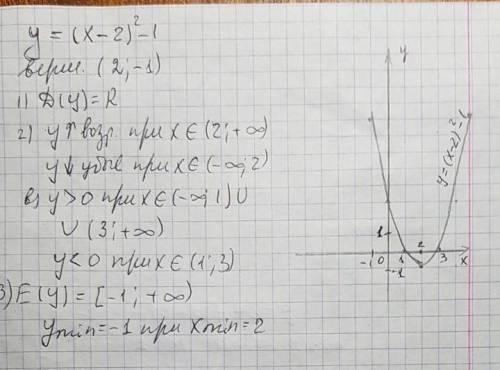 y = (x-2)²-1
верш. (2;-1)
1) D(y)=R
2) y↑ возр. при x∈(2;+∞)
y↓ убыв при x∈(-∞;2)
в) y>0 при x∈(-∞;1)∪
∪ (3;+∞)
y<0 при x∈(1;3)
3) E(y)=[-1;+∞)
y min=-1 при x min=2
y
y=(x-2)²-1
1
-1 0 1 2 3 x
-1